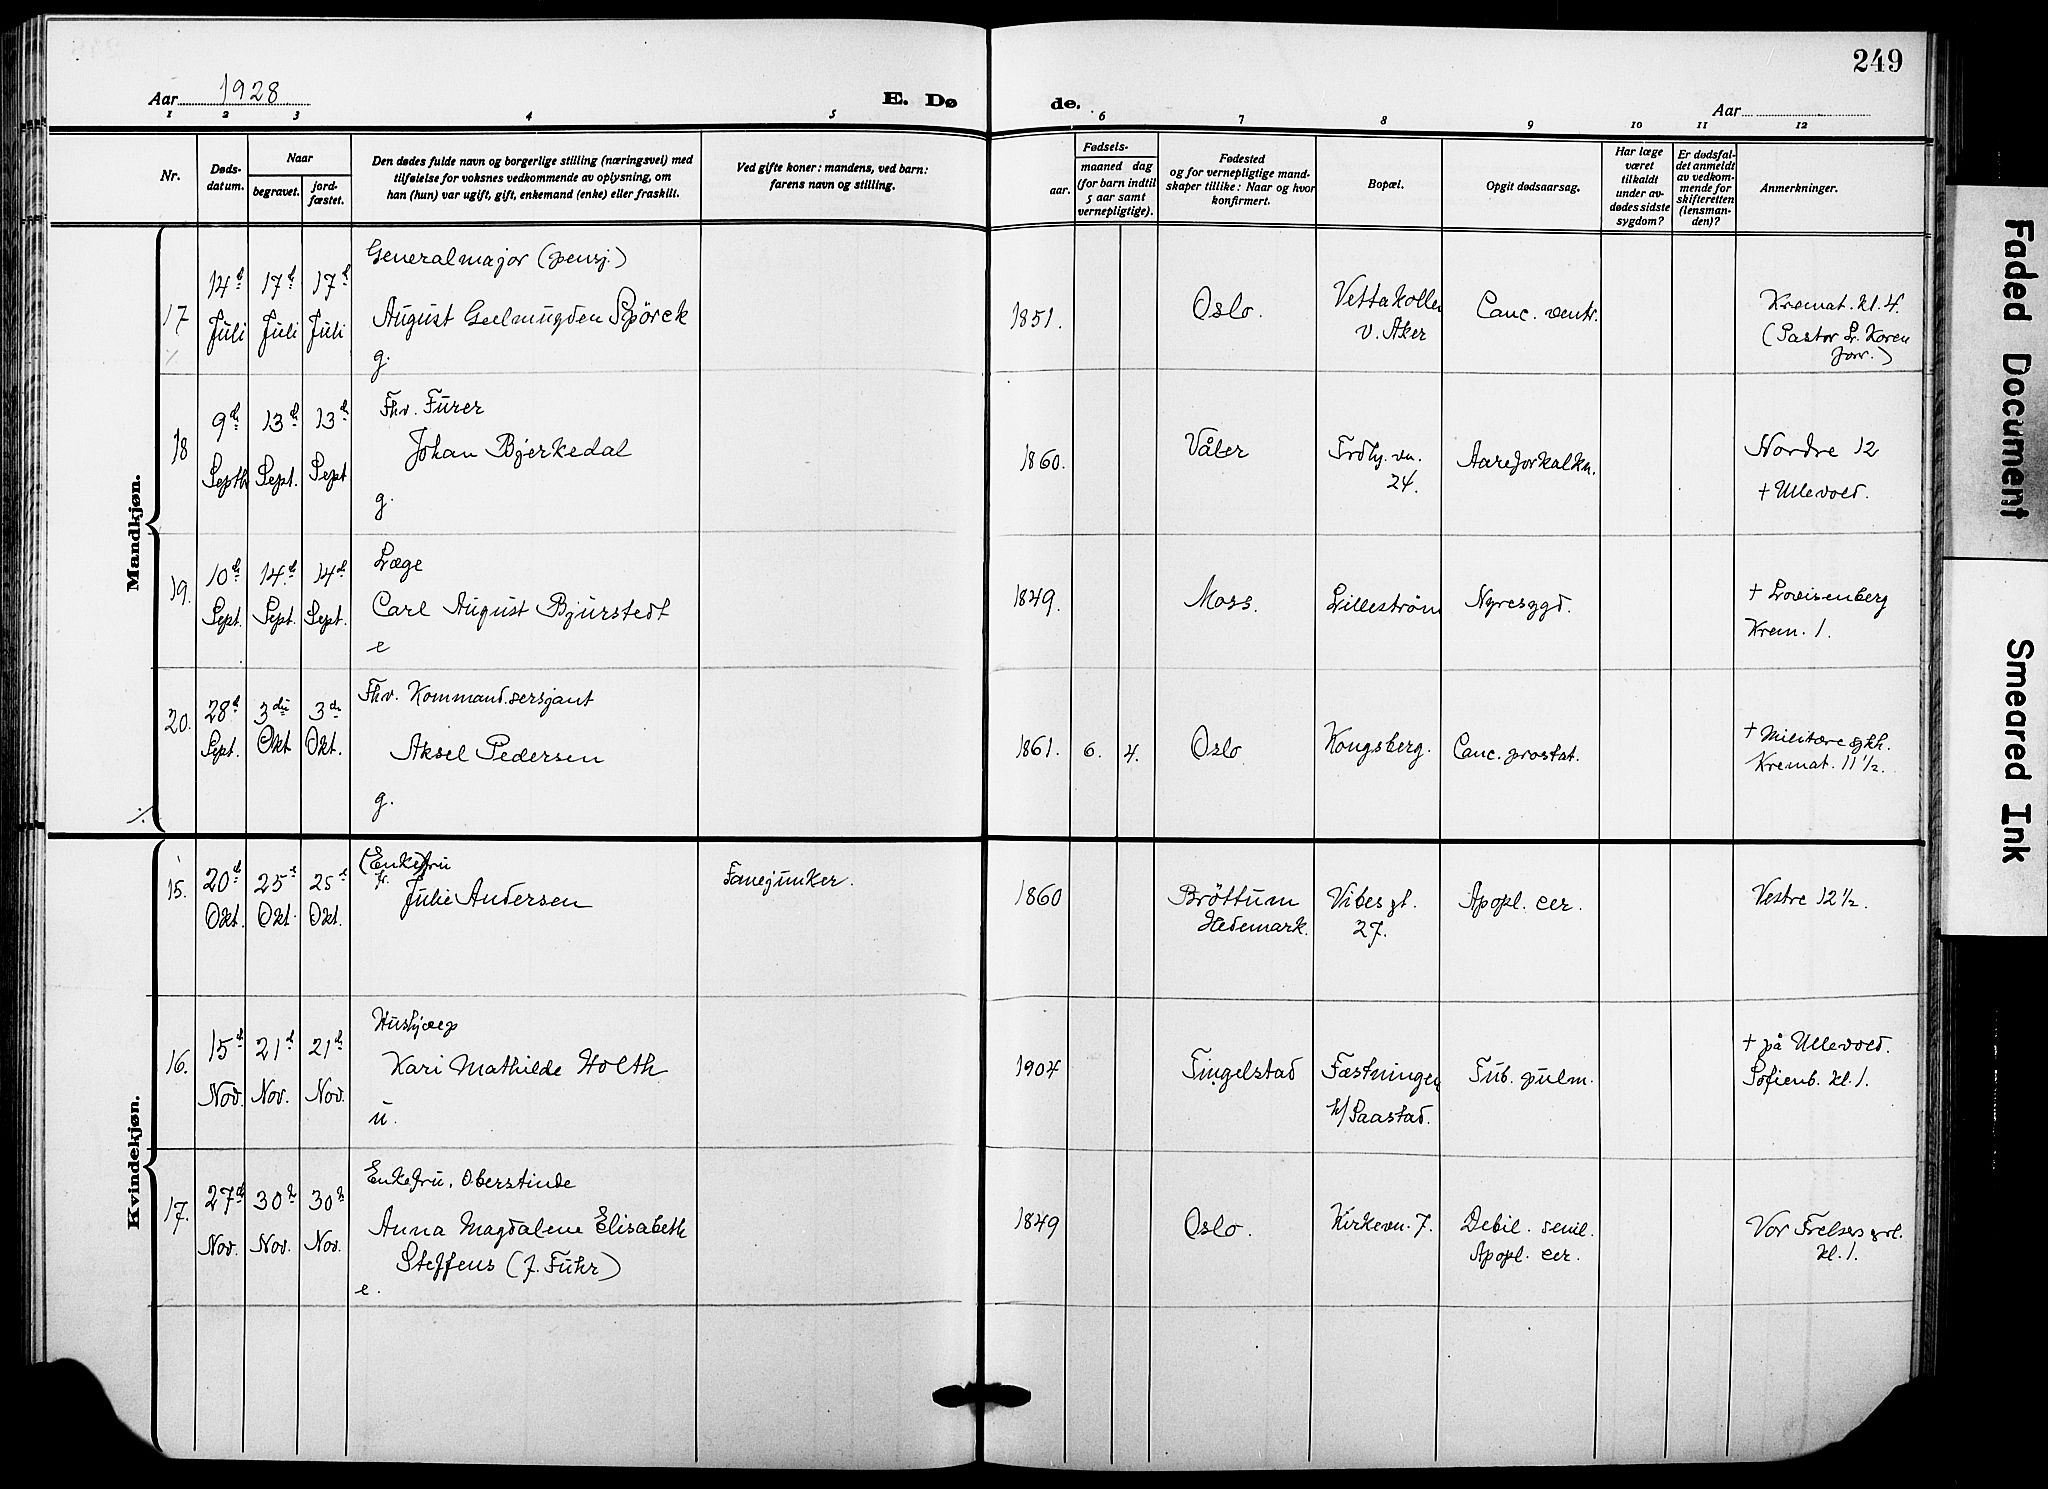 249
Aar 1928.
E. Dø
de.
Aar
1 2 3 4 5 6 7 8 9 10 11 12
Nr.
Døds-
datum.
Naar
begravet.
jord-
fæstet.
Den dødes fulde navn og borgerlige stilling (næringsvei) med
tilføielse for voksnes vedkommende av oplysning, om
han (hun) var ugift, gift, enkemand (enke) eller fraskilt.
Ved gifte koner: mandens, ved barn:
farens navn og stilling.
Fødsels-
aar.
maaned dag
(for barn indtil
5 aar samt
vernepligtige).
Fødested
og for vernepligtige mand-
skaper tillike: Naar og hvor
konfirmert.
Bopæl.
Opgit dødsaarsag.
Har læge
været
tilkaldt
under av-
dødes sidste
sygdom?
Er dødsfal-
det anmeldt
av vedkom-
mende for
skifteretten
(lensman-
den)?
Anmerkninger.
Mandkjøn.
17
14d Juli
17d Juli
17d Juli
Generalmajor (pensj.)
August Geelmuyden Spörck
g.
1851.
Oslo.
Vettakollen
v. Aker
Canc. ventr.
Kremat. kl. 4.
(Pastor Koren
forr.)
18
9de Septb
13de Sept.
13de Sept
Fhv. Furer
Johan Bjerkedal
g.
1860.
Våler
Frdbg. vn.
24.
Aareforkalkn.
Nordre 12
+ Ullevold.
19.
10de Sept.
14de Sept.
14de Sept.
Læge
Carl August Bjurstedt
e
1849.
Moss.
Lillestrøm
Nyresygd.
+ Lovisenberg
Krem. 1.
20.
28d Sept.
3die Okt
3di Okt.
Fhv. Kommandersersjant
Aksel Pedersen
g.
1861. 6. 4.
Oslo
Kongsberg.
Canc. prostat.
+ Militære sykh.
Kremat. 11 1/2.
Kvindekjøn.
15.
20d Okt.
25d Okt.
25d Okt.
(Enkefru
Julie Andersen
Fanejunker.
1860
Bröttum
Hedemark.
Vibes gt.
27.
Apopl. cer.
Vestre 12 1/2.
16.
15d Nov.
21d Nov.
21de Nov.
Hushjælp
Kari Mathilde Holth
u.
1904
Tingelstad
Fæstningen
h/ Saastad.
Tub. pulm.
+ på Ullevold.
Sofienb. kl. 1.
17.
27de Nov.
30te Nov.
30te Nov.
Enkefru, Oberstinde
Anna Magdalene Elisabeth
Steffens (f. Fuhr)
e.
1849
Oslo.
Kirkevn. 7.
Debil. senil.
Apopl. cer.
Vor Frelsers grl.
kl. 1.
Faded Document
Smeared Ink